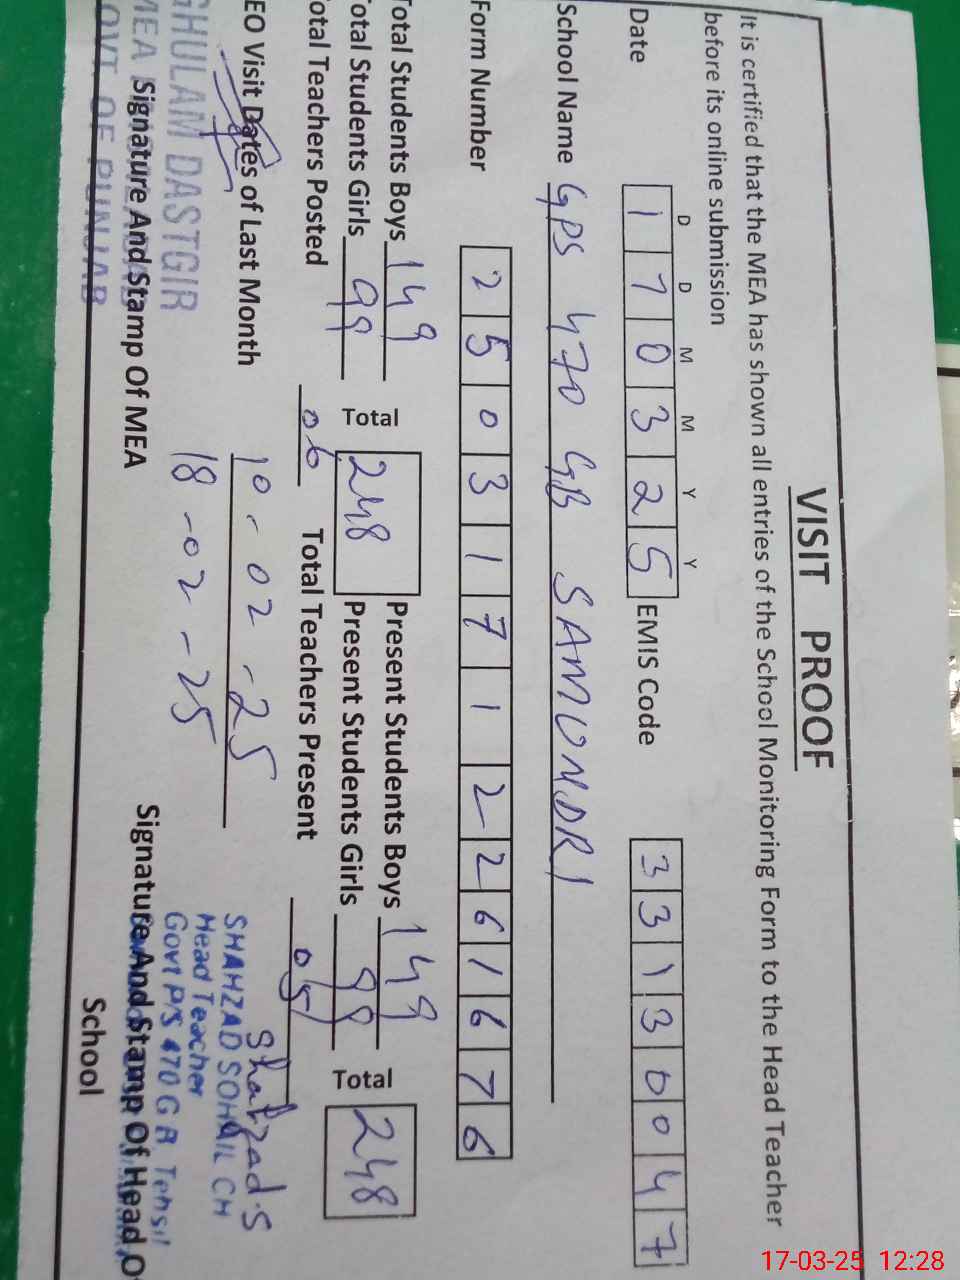 VISIT PROOF
It is certified that the MEA has shown all entries of the School Monitoring Form to the Head Teacher
before its online submission
D D M M Y Y
Date 1 7 0 3 2 5 EMIS Code 3 3 1 3 0 0 4 7
School Name GPS 470 GB SAMUNDRI
Form Number 2 5 0 3 1 7 1 2 2 6 1 6 7 6
Total Students Boys 149 Present Students Boys 149
Total 248 Total 248
Total Students Girls 99 Present Students Girls 99
Total Teachers Posted 06 Total Teachers Present 05
EO Visit Dates of Last Month 10-02-25
18-02-25
Shahzad.S
SHAHZAD SOHAIL CH
Head Teacher
Govt P/S 470 G B Tehsil
GHULAM DASTGIR
MEA
GOVT OF PUNJAB
Signature And Stamp Of MEA
Signature And Stamp Of Head Of
School
17-03-25 12:28